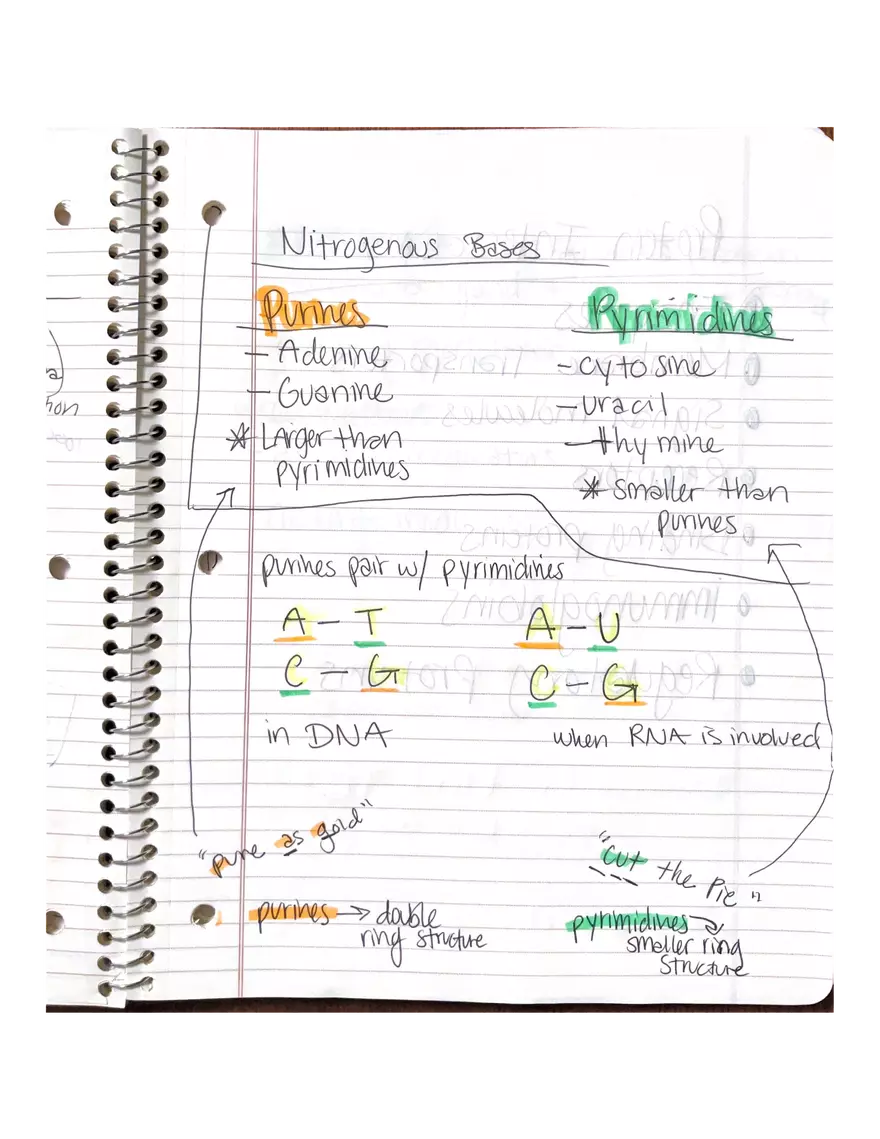 Nitrogenous Bases
Purines
- Adenine
- Guanine
* Larger than
pyrimidines
Pyrimidines
- cytosine
- uracil
- thymine
* smaller than
purines
purines pair w/ pyrimidines
A - T
C - G
in DNA
A - U
C - G
when RNA is involved
"pure as gold"
purines → double
ring structure
"cut the pie"
pyrimidines →
smaller ring
structure